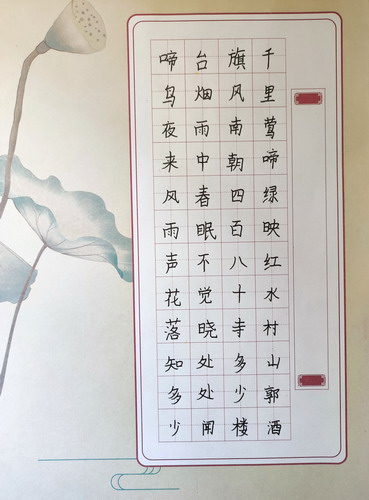 千里莺啼绿映红水村山郭酒
旗风南朝四百八十寺多少楼
台烟雨中春眠不觉晓处处闻
啼鸟夜来风雨声花落知多少